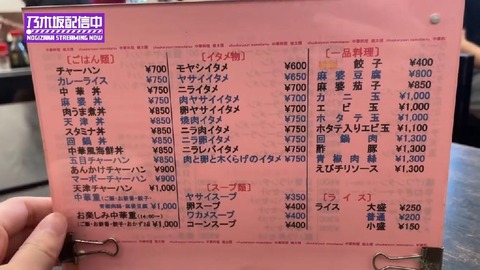 乃木坂配信中
NOGIZAKA STREAMING NOW
[ごはん類]
チャーハン ¥700
カレーライス ¥750
中華丼 ¥850
麻婆丼 ¥850
肉うま煮丼 ¥850
天津丼 ¥850
スタミナ丼 ¥850
回鍋丼 ¥850
中華風海鮮丼 ¥850
五目チャーハン ¥850
あんかけチャーハン ¥900
マーボーチャーハン ¥900
天津チャーハン ¥1,000
中華重 ¥1,000
お楽しみ中華重
[イタメ物]
モヤシイタメ ¥600
ヤサイイタメ ¥650
ニライタメ ¥650
肉ヤサイイタメ ¥750
ニラ玉イタメ ¥750
焼肉イタメ ¥750
ニラ肉イタメ ¥750
肉と卵のイタメ ¥750
肉と卵と木くらげのイタメ ¥750
[スープ類]
ヤサイスープ ¥350
卵スープ ¥400
ワカメスープ ¥400
コーンスープ ¥400
[一品料理]
餃子 ¥400
麻婆豆腐 ¥800
麻婆茄子 ¥850
カニ玉 ¥1,000
エビ玉 ¥1,000
ホタテ玉 ¥1,100
ホタテ入りエビ玉 ¥1,100
回鍋肉 ¥1,000
酢豚 ¥1,000
青椒肉絲 ¥1,000
えびチリソース ¥1,000
[ライス]
ライス 大盛 ¥250
普通 ¥200
小盛 ¥150